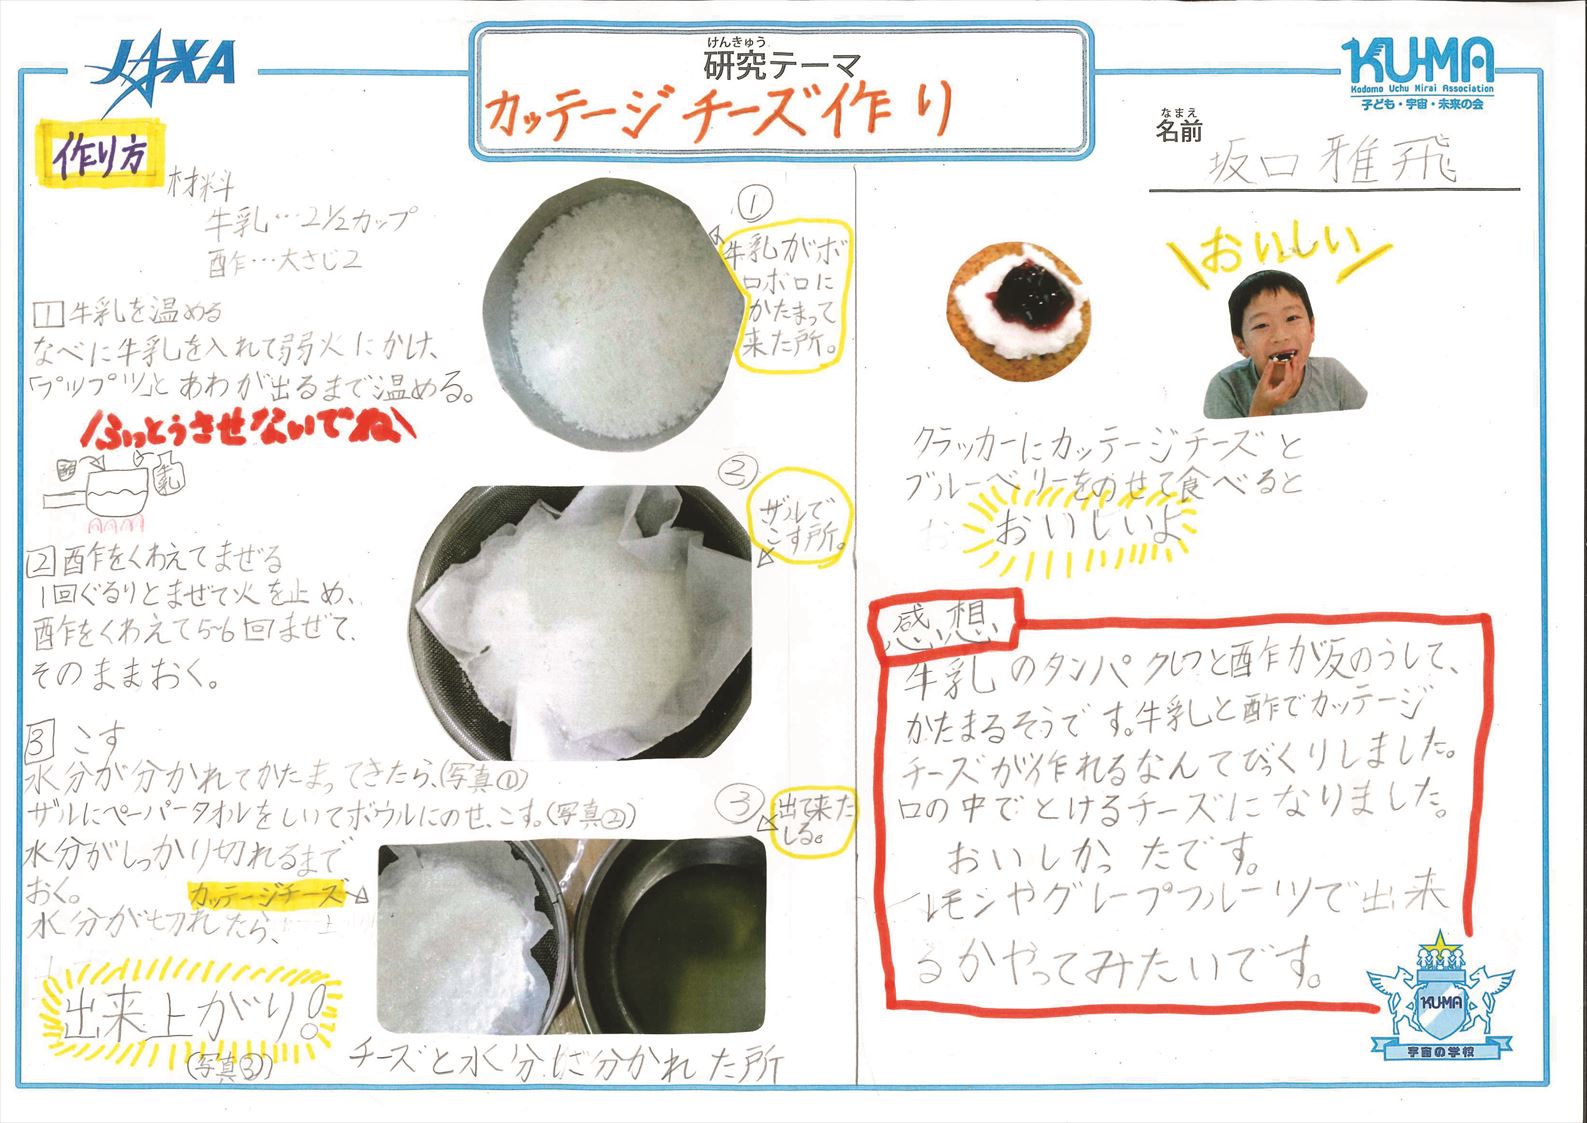 JAXA
けんきゅう
研究テーマ
カッテージチーズ作り
KU-MA
Kodomo Uchu Mirai Association
子ども・宇宙・未来の会
なまえ
名前
坂口雅飛
作り方
材料
牛乳…2 1/2カップ
酢…大さじ2
1 牛乳を温める
なべに牛乳を入れて弱火にかけ、
「プップツ」とあわが出るまで温める。
ふっとうさせないでね
酢
牛乳
2 酢をくわえてまぜる
1回ぐるりとまぜて火を止め、
酢をくわえて5~6回まぜて、
そのままおく。
3 こす
水分が分かれてかたまってきたら、(写真①)
ザルにペーパータオルをしいてボウルにのせ、こす。(写真②)
水分がしっかり切れるまで
おく。
カッテージチーズ
水分が切れたら、
出来上がり!
(写真③)
①
牛乳がボ
ロボロに
かたまって
来た所。
②
ザルで
こす所。
③
出て来た
しる。
チーズと水分が分かれた所
おいしい
クラッカーにカッテージチーズと
ブルーベリーをのせて食べると
おいしいよ
感想
牛乳のタンパクしつと酢が反のうして、
かたまるそうです。牛乳と酢でカッテージ
チーズが作れるなんてびっくりしました。
口の中でとけるチーズになりました。
おいしかったです。
レモンやグレープフルーツで出来
るかやってみたいです。
KUMA
宇宙の学校